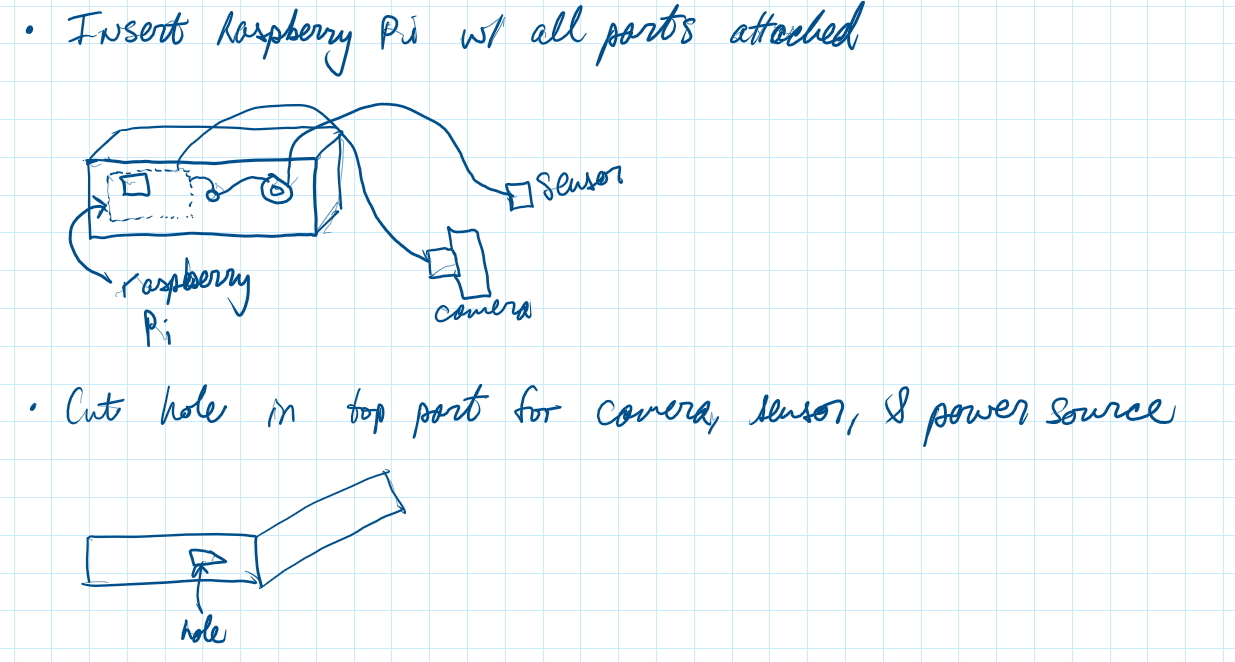 • Insert Raspberry Pi w/ all parts attached
sensor
raspberry
Pi
camera
• Cut hole in top part for camera, sensor, & power source
hole